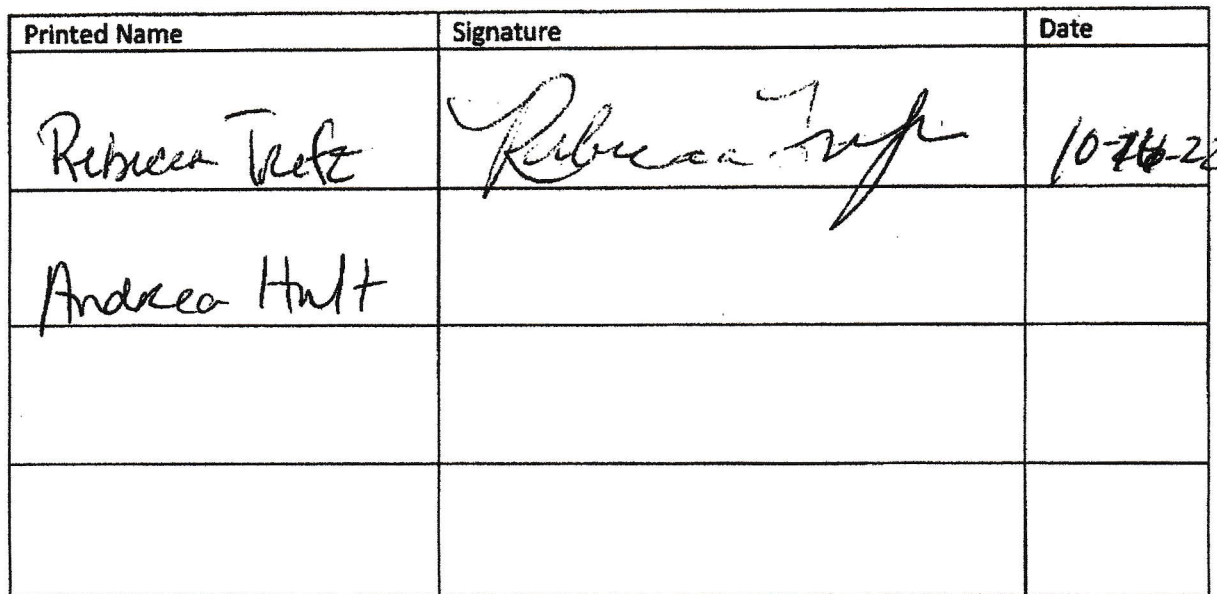 Printed Name Signature Date
Rebecca Trefz Rebecca Trefz
Andrea Hult